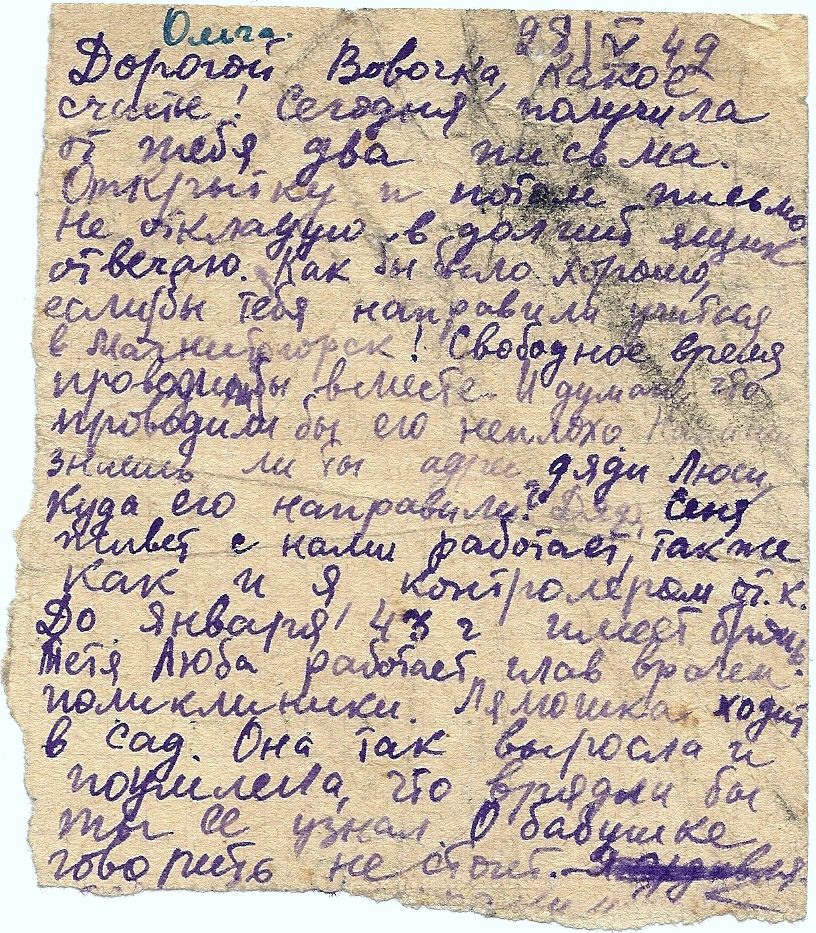 Ольга.
28/V 42
Дорогой Вовочка, какое
счастье! Сегодня получила
от тебя два письма.
Открытку и потом письмо
не откладую в долгий ящик
отвечаю. Как бы было хорошо,
если бы тебя направили учиться
в Магнитогорск! Свободное время
бы вместе. И думаю что
проводили бы его неплохо.
знаешь ли ты адрес дяди Люси,
куда его направили? Дядя Сеня
живет с нами работает, также
как и я контролером от.к.
До января 43 г имеет бронь.
Тетя Люба работает глав врачем
поликлиники. Лямошка ходит
в сад. Она так выросла и
поумнела, что врядли бы
ты ее узнал. О бабушке
говорить не стоит.